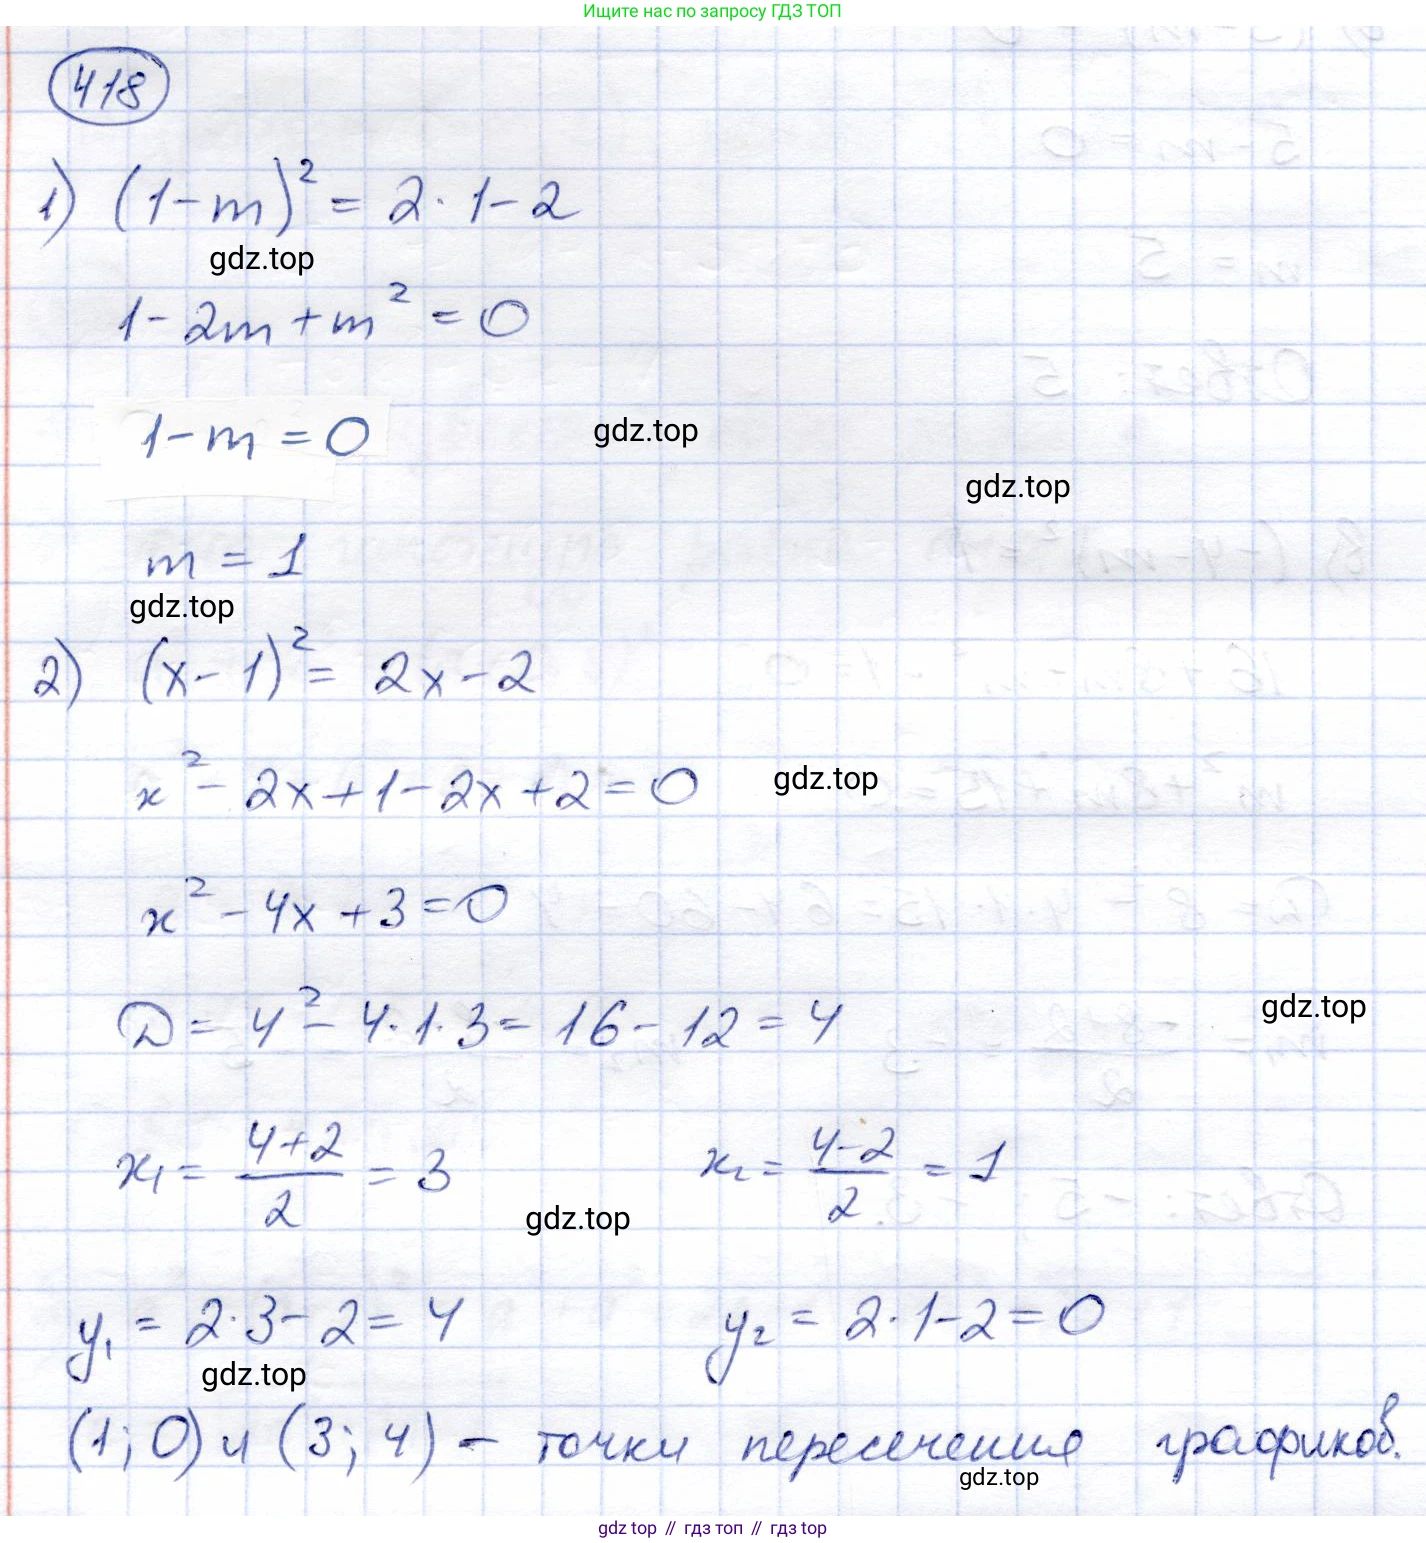 Ищите нас по запросу ГДЗ ТОП
418
1) (1-m)² = 2·1-2
gdz.top
1-2m+m² = 0
1-m = 0
gdz.top
gdz.top
m = 1
gdz.top
2) (x-1)² = 2x-2
x²-2x+1-2x+2=0
gdz.top
x²-4x+3=0
D = 4²-4·1·3 = 16-12 = 4
gdz.top
x₁ = (4+2)/2 = 3 x₂ = (4-2)/2 = 1
gdz.top
y₁ = 2·3-2 = 4 y₂ = 2·1-2 = 0
gdz.top
(1; 0) и (3; 4) – точки пересечения графиков.
gdz.top
gdz top // гдз топ // gdz top